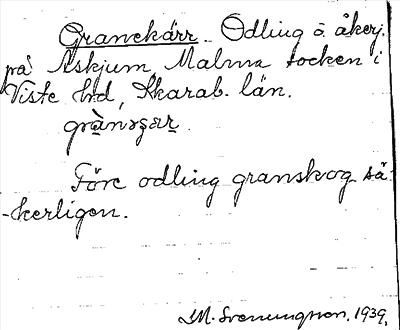 Granekärr. Odling o. åkerj.
på Askjum, Malma socken i
Viste hd, Skarab. län.
Före odling granskog sä-
-kerligen.
M. Svenungsson. 1939.